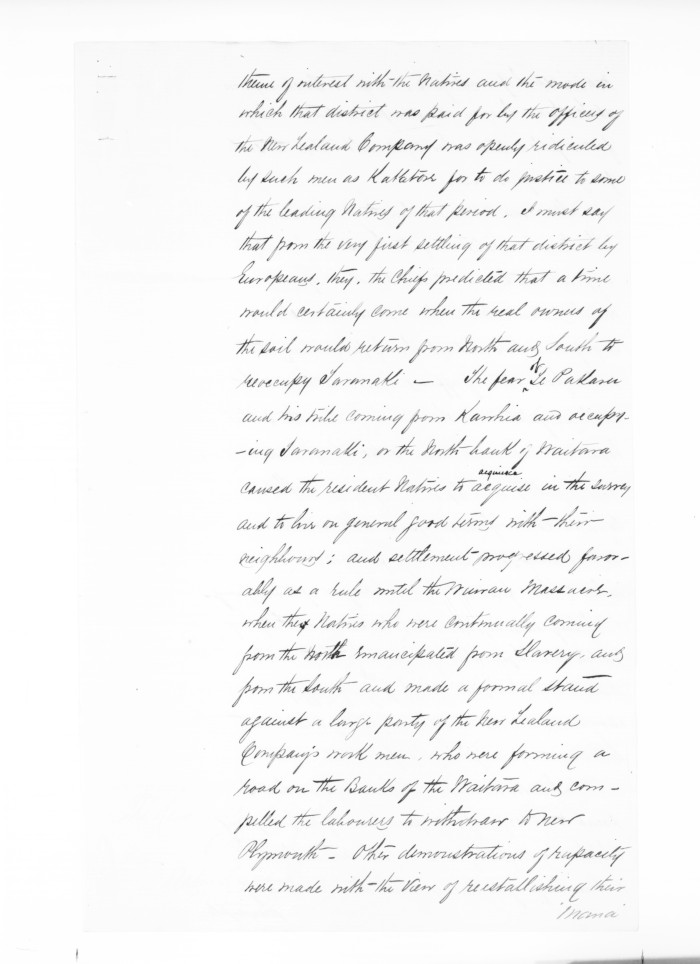 theme of interest with the Natives and the mode in
which that district was paid for by the officers of
the New Zealand Company was openly ridiculed
by such men as Katatore for to do justice to some
of the leading Natives of that period. I must say
that from the very first settling of that district by
Europeans, they, the Chiefs predicted that a time
would certainly come when the real owners of
the soil would return from North and South to
reoccupy Taranaki — The fear of Te Pakaru
and his tribe coming from Kawhia and occupy-
-ing Taranaki, or the North bank of Waitara
acquiesce
caused the resident Natives to acquise in the survey
and to live on general good terms with their
neighbours; and settlement progressed favor-
ably as a rule until the Wairau Massacre,
when the Natives who were continually coming
from the North emancipated from Slavery, and
from the South and made a formal stand
against a large party of the New Zealand
Company's work men, who were forming a
road on the Banks of the Waitara and com-
pelled the labourers to withdraw to New
Plymouth — Other demonstrations of rapacity
were made with the view of reestablishing their
'Mana'